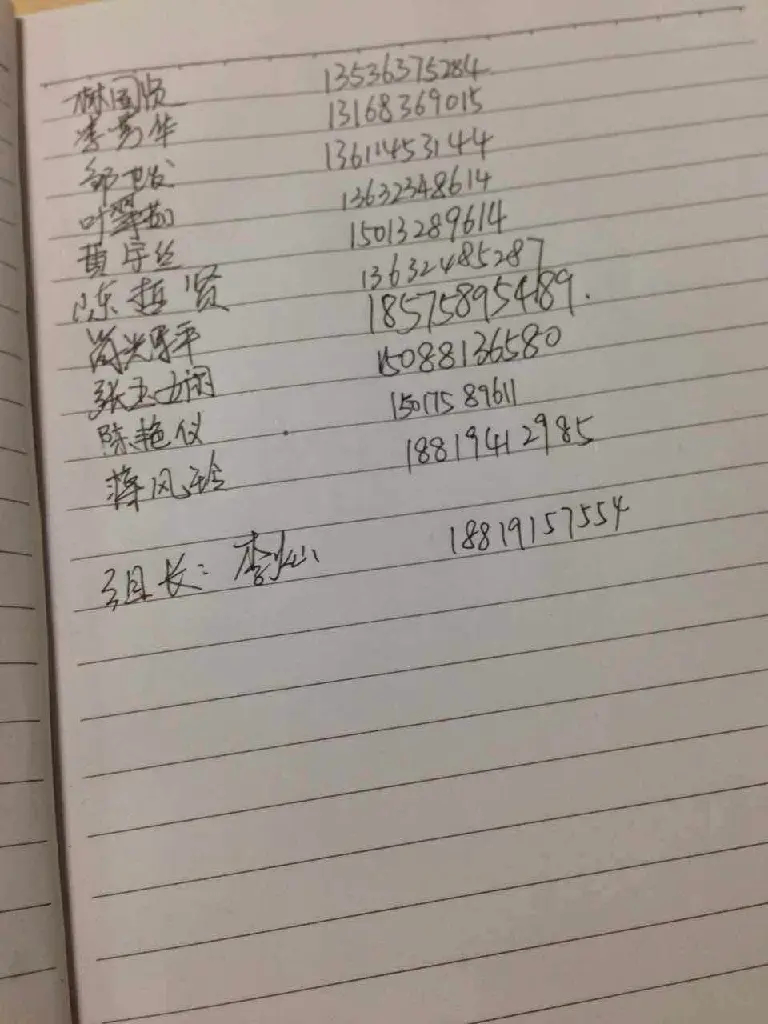 林国贤 13536375284
李秀华 13168369015
邹卫发 13611453144
叶翠茹 13632348614
黄宇丝 15013289614
陈哲贤 13632485287
18575895489.
张玉娴 15088136580
陈艳仪 15017589611
蒋风玲 18819412985
组长: 李灿 18819157554